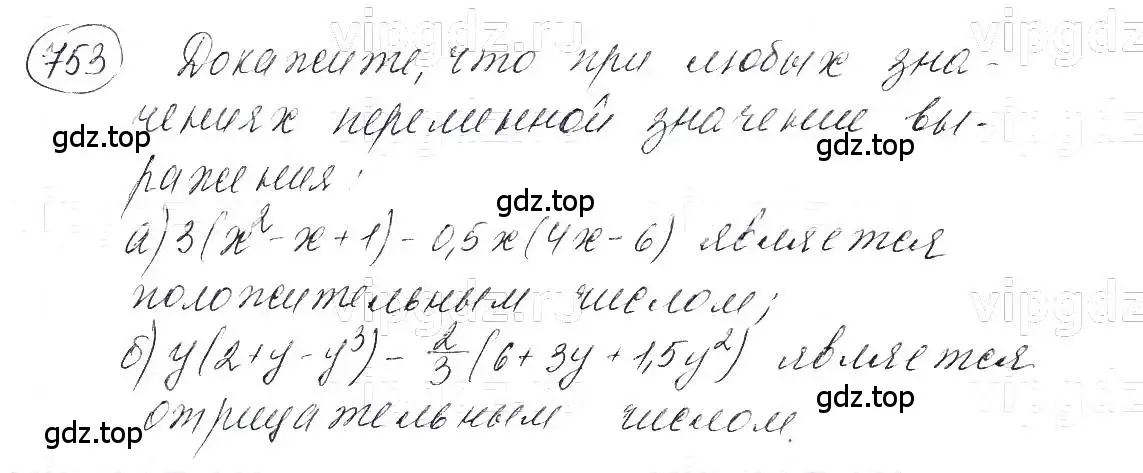 753 Докажите, что при любых зна-
чениях переменной значение вы-
ражения:
а) 3(x² - x + 1) - 0,5x(4x - 6) является
положительным числом;
б) y(2 + y - y³) - 2/3 (6 + 3y + 1,5y²) является
отрицательным числом.
vipgdz.ru
vipgdz
gdz.top
gdz.top
gdz.top
vipgdz.ru
vipgdz
gdz.top
gdz.top